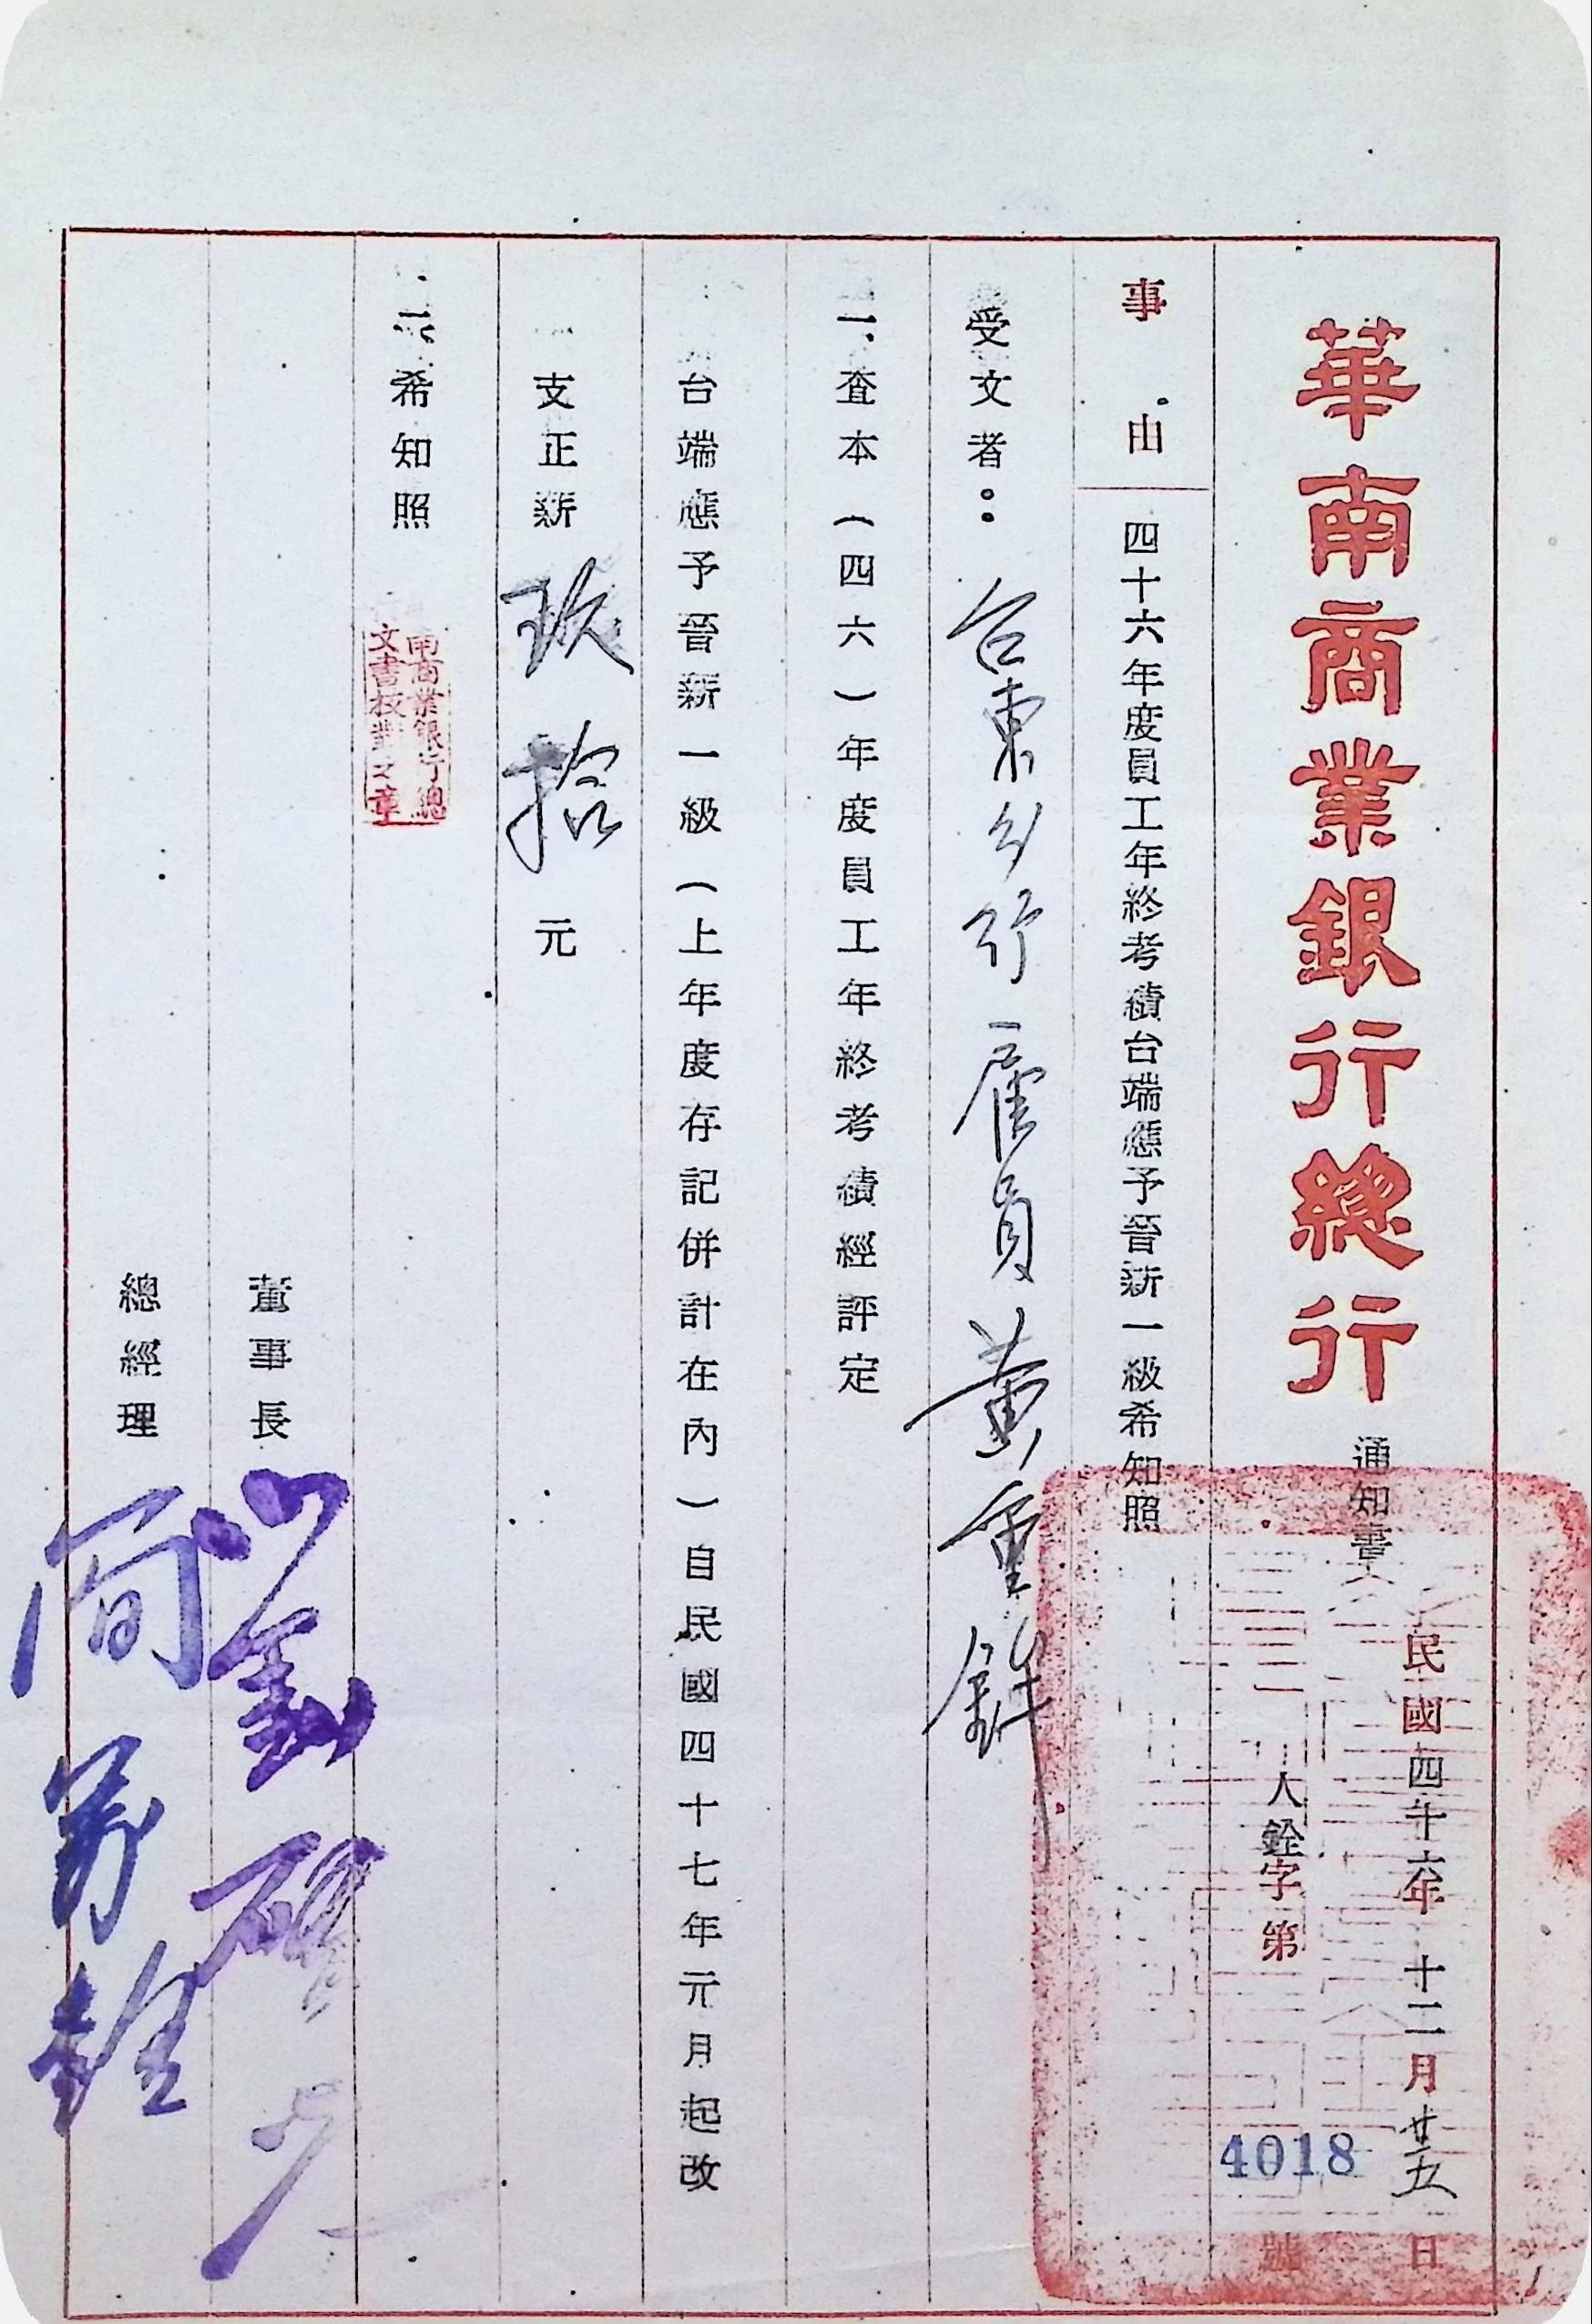 華南商業銀行總行 通知書
民國四十六年十二月廿五日
人銓字第4018號
事由 四十六年度員工年終考績台端應予晉薪一級希知照
受文者：台東分行雇員黃重鉾
一、查本（四六）年度員工年終考績經評定
台端應予晉薪一級（上年度存記併計在內）自民國四十七年元月起改
支正薪玖拾元
二、希知照
南商業銀行總
文書校對之章
董事長
總經理